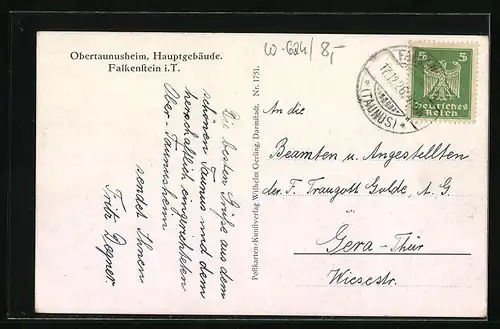 Obertaunusheim, Hauptgebäude.
Falkenstein i.T.
W-684/8,-
Die besten Grüße aus dem
schönen Taunus und dem
herrschaftlich eingerichteten
Ober-Taunusheim
sendet Ihnen
Fritz Degner.
Postkarten-Kunstverlag Wilhelm Gerling, Darmstadt. Nr. 1751.
17.12.26
(TAUNUS)
5 5
Deutsches
Reich
An die
Beamten u. Angestellten
der F. Traugott Golde, A.G.
Gera-Thür
Wiesestr.